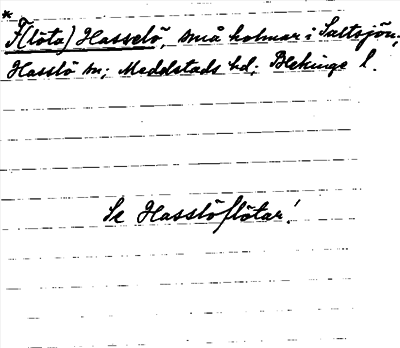 *
F(löta) Hasselö, små holmar i Saltsjön;
Hasslö sn; Medelstads hd; Blekinge l.
Se Hasslöflötar!